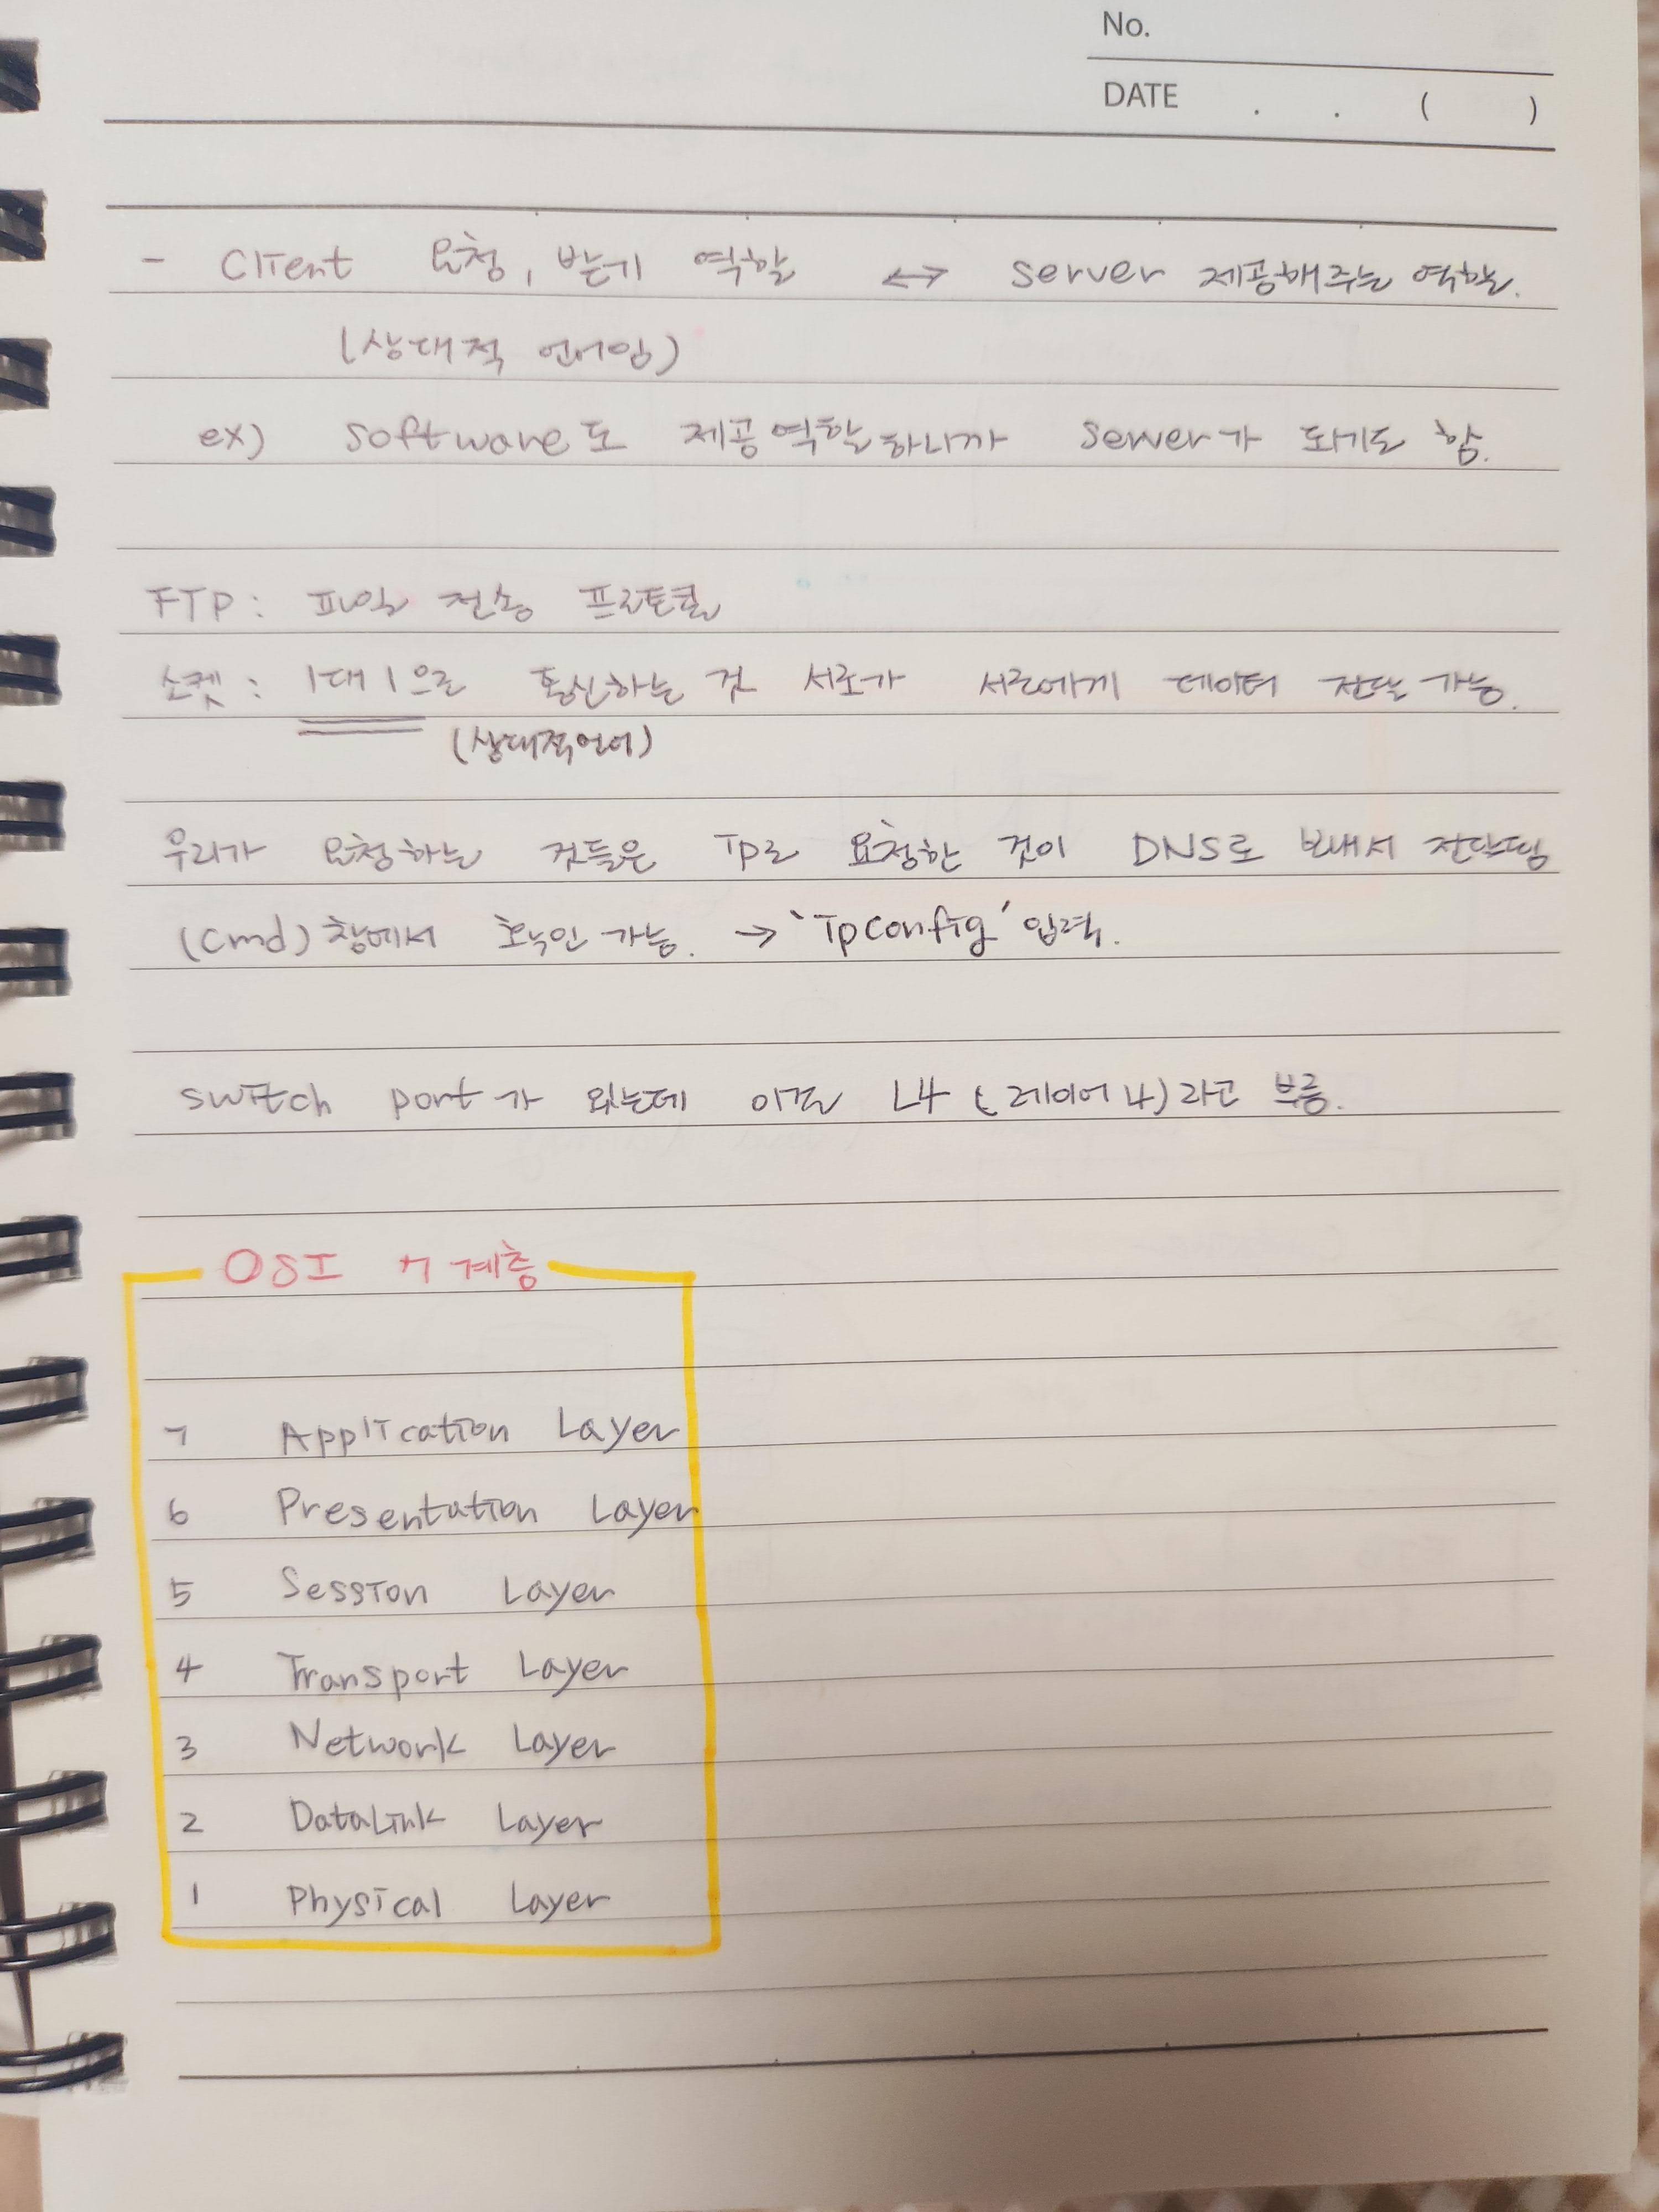 No.
DATE . . ( )
- Client 요청, 받기 역할 ↔ server 제공해주는 역할.
(상대적 언어임)
ex) software도 제공역할하니까 server가 되기도 함.
FTP : 파일 전송 프로토콜
소켓 : 1대1으로 통신하는 것 서로가 서로에게 데이터 전달 가능.
(상대적언어)
우리가 요청하는 것들은 ip로 요청한 것이 DNS로 보내서 전달됨
(cmd) 창에서 확인 가능. → 'ipconfig' 입력.
switch port가 있는데 이걸 L4 (레이어 4)라고 부름.
OSI 7 계층
7 Application Layer
6 Presentation Layer
5 Session Layer
4 Transport Layer
3 Network Layer
2 DataLink Layer
1 Physical Layer